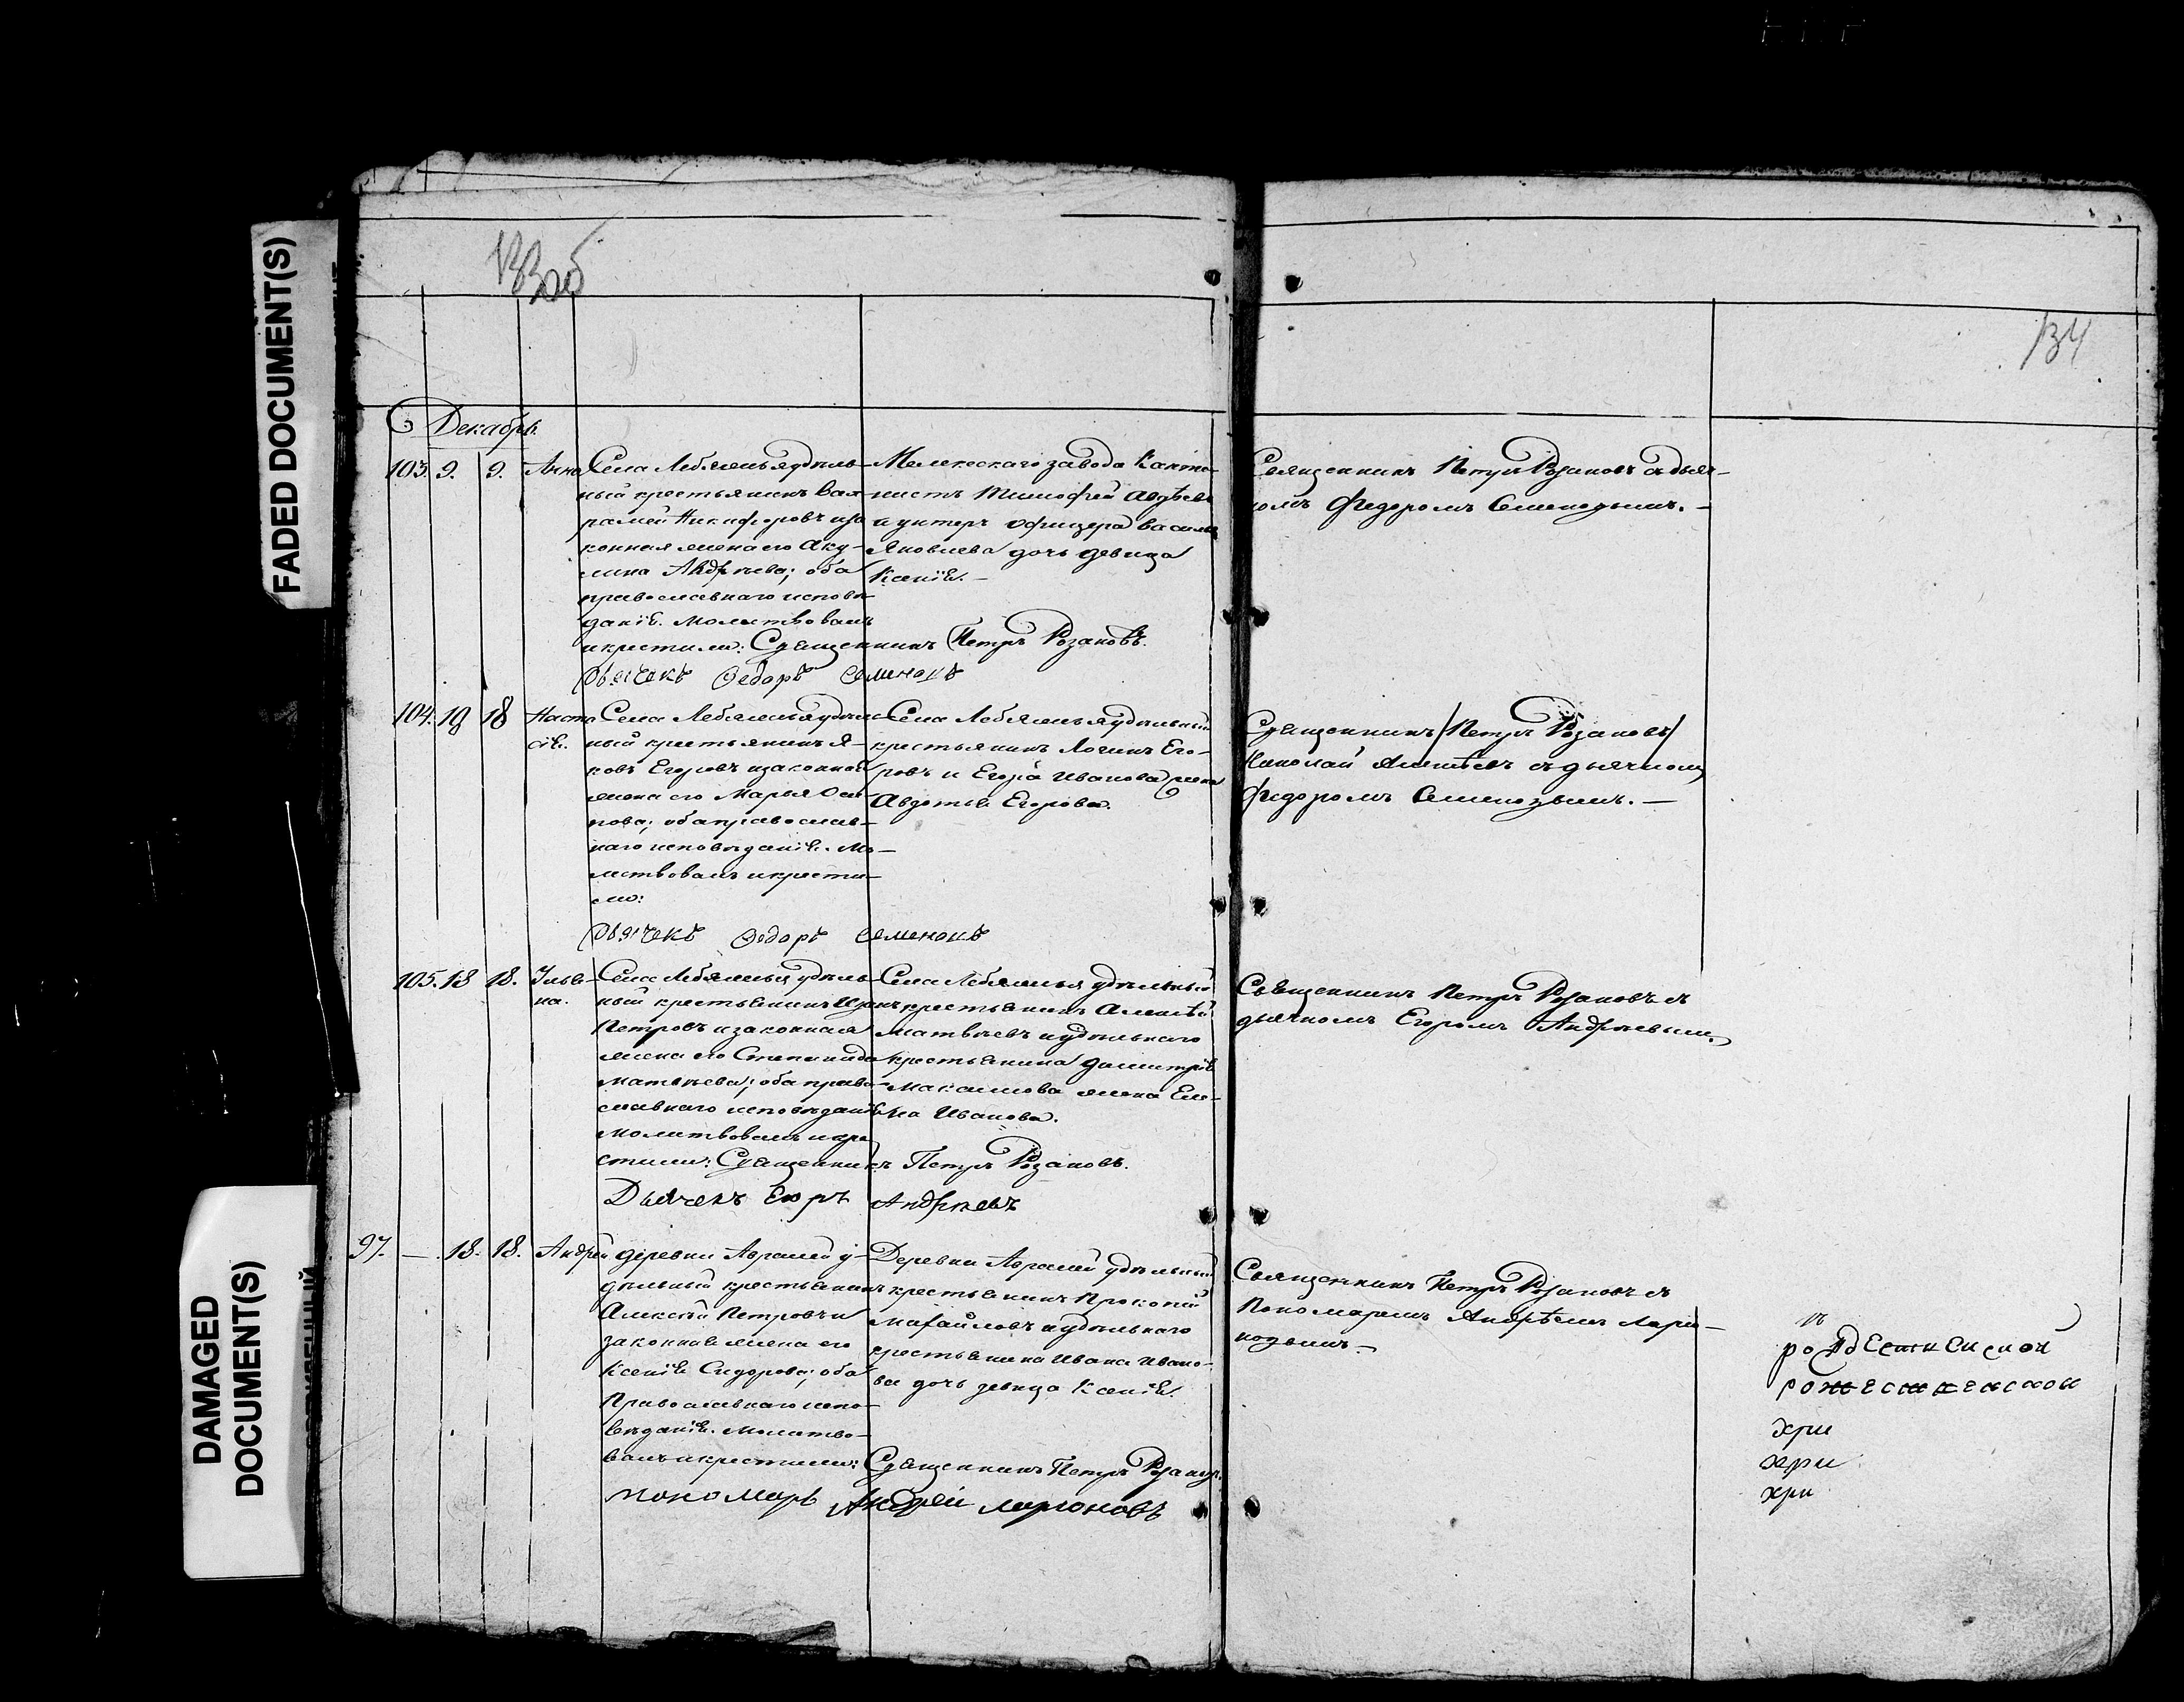 FADED DOCUMENT(S)
DAMAGED
DOCUMENT(S)
133 об
134
Декабрь.
103. 9. 9. Анна
Села Лебяжья удѣль-
ный крестьянинъ Вар-
ламей Никифоровъ и за
конная жена его Аку-
лина Андрѣева; оба
православнаго исповѣ
данія. Молитвовалъ
и крестили: Священникъ Петръ Розановъ.
Дьячекъ Ѳедоръ Семеновъ
Мелекескаго завода Канто-
нистъ Тимофей Авдѣевъ
и унтеръ офицера Василья
Яковлева дочь девица
Ксенія.
Священникъ Петръ Розановъ съ дьяч-
комъ Федоромъ Семеновымъ.
104. 19 18 Наста
сія.
Села Лебяжья удѣль
ный крестьянинъ Я-
ковъ Егоровъ и законная
жена его Марья Оси
пова; оба православ-
наго исповѣданія. Мо-
литвовалъ и крести-
ли:
Дьячекъ Ѳедоръ Семеновъ
Села Лебяжья удѣльный
крестьянинъ Логинъ Его-
ровъ и Егора Иванова жена
Авдотья Егорова.
Священникъ /Петръ Розановъ/
Николай Алексѣевъ съ дьячкомъ
Федоромъ Семеновымъ.
105. 18 18. Улья-
на.
Села Лебяжья удѣль-
ный крестьянинъ Иванъ
Петровъ и законная
жена его Степанида
Матвѣева; оба право-
славнаго исповѣданія
Молитвовалъ и кре
стили: Священникъ Петръ Розановъ.
Дьячекъ Егоръ Андреевъ
Села Лебяжья удѣльный
крестьянинъ Алексѣй
Матвѣевъ и удѣльнаго
крестьянина Димитрія
Максимова жена Еле-
на Иванова.
Священникъ Петръ Розановъ съ
дьячкомъ Егоромъ Андрѣевымъ.
97. — 18. 18. Андрей
деревни Авралей у-
дѣльный крестьянинъ
Алексѣй Петровъ и
законная жена его
Ксенія Сидорова; оба
Православнаго испо-
вѣданія. Молитво-
валъ и крестили: Священникъ Петръ Розановъ.
пономарь Андрей Ларионовъ
Деревни Авралей удѣльный
крестьянинъ Прокопій
Михайловъ и удѣльнаго
крестьянина Ивана Ивано-
ва дочь девица Ксенія.
Священникъ Петръ Розановъ съ
Пономаремъ Андрѣемъ Ларио-
новымъ.
хри
хри
хри